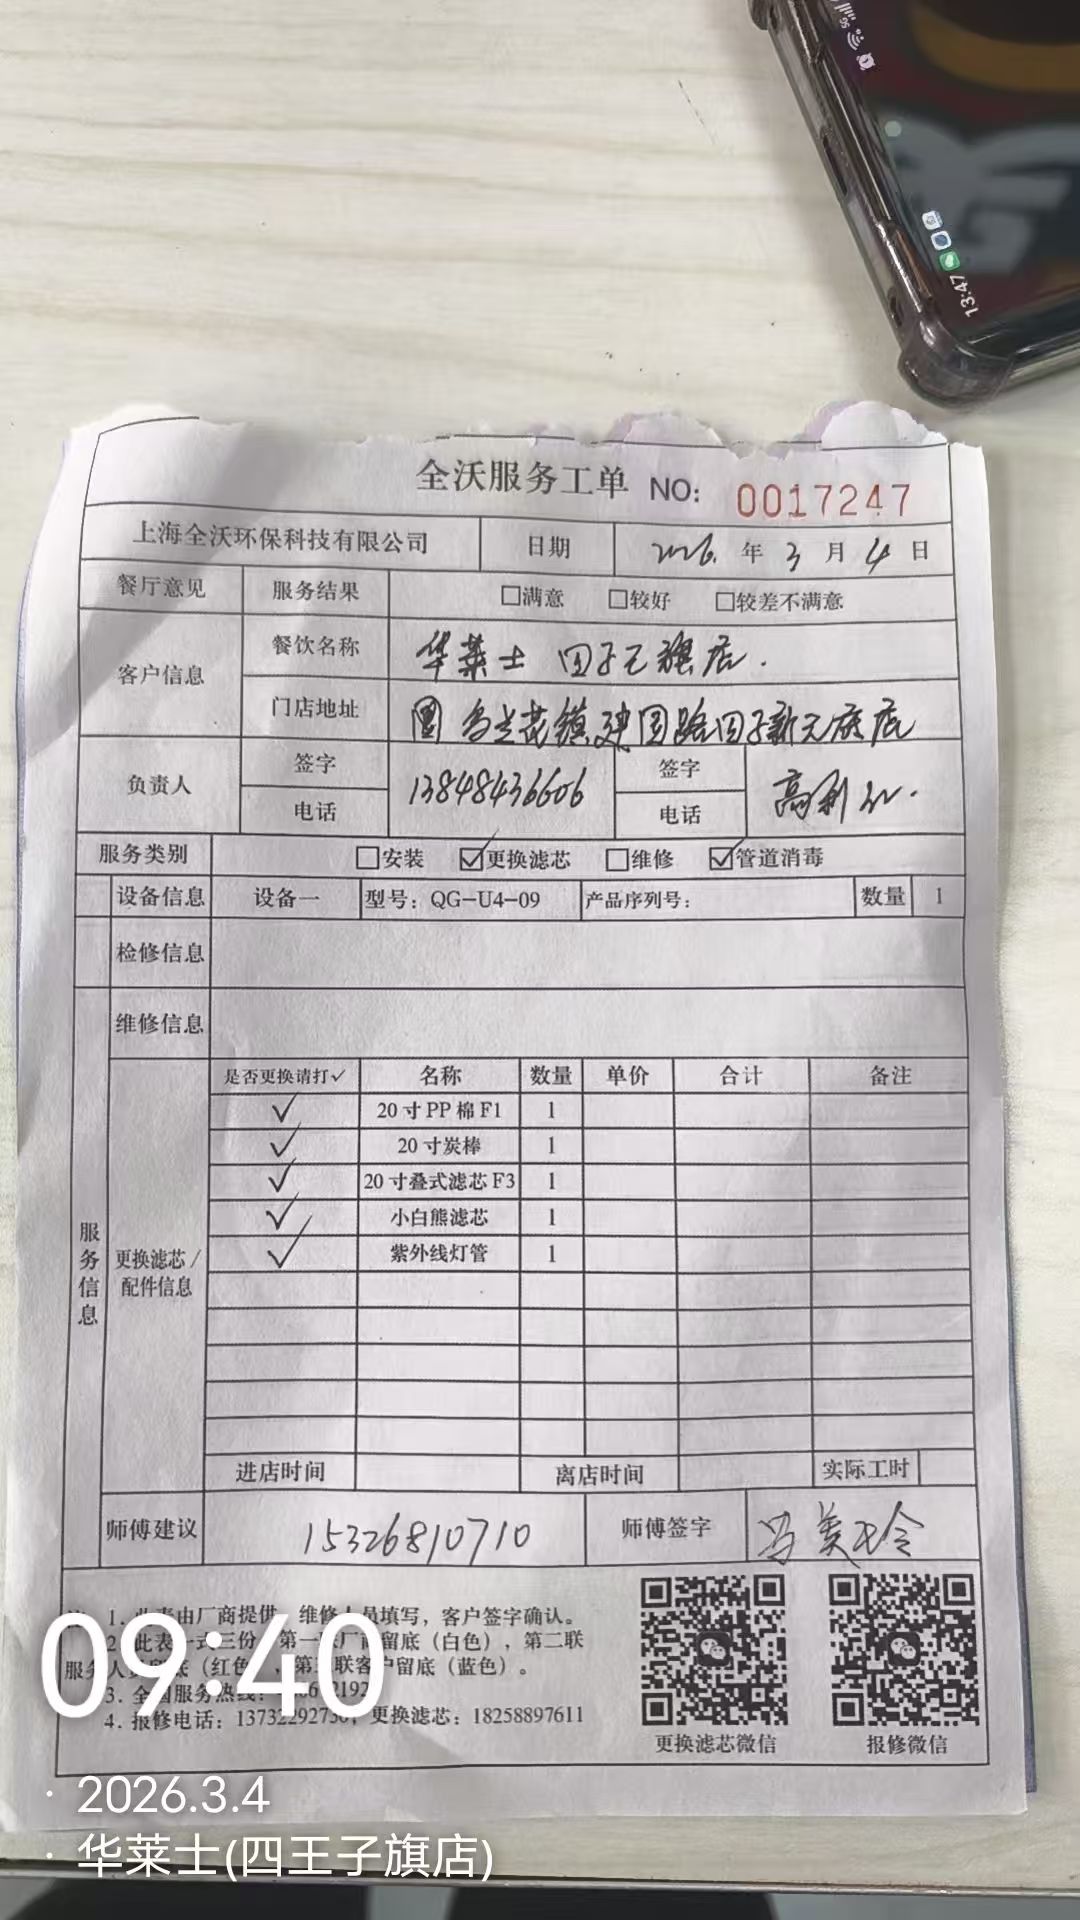 13:47
全沃服务工单 NO: 0017247
上海全沃环保科技有限公司 日期 2026. 年 3 月 4 日
餐厅意见 服务结果 □满意 □较好 □较差不满意
客户信息 餐饮名称 华莱士 四子王旗店.
门店地址 乌兰花镇建国路四子新天店
负责人 签字 电话 13848436606 签字 电话 高利
服务类别 □安装 ☑更换滤芯 □维修 ☑管道消毒
设备信息 设备一 型号: QG-U4-09 产品序列号: 数量 1
检修信息
维修信息
服务信息
更换滤芯/配件信息
是否更换请打✓ 名称 数量 单价 合计 备注
✓ 20寸PP棉F1 1
✓ 20寸炭棒 1
✓ 20寸叠式滤芯F3 1
✓ 小白熊滤芯 1
✓ 紫外线灯管 1
进店时间 离店时间 实际工时
师傅建议 15326810710 师傅签字 冯美玲
1. 此表由厂商提供,维修人员填写,客户签字确认。
2. 此表一式三份,第一联厂商留底(白色),第二联
服务人员留底(红色),第三联客户留底(蓝色)。
3. 全国服务热线:
4. 报修电话: 更换滤芯: 18258897611
更换滤芯微信 报修微信
09:40
· 2026.3.4
· 华莱士(四王子旗店)